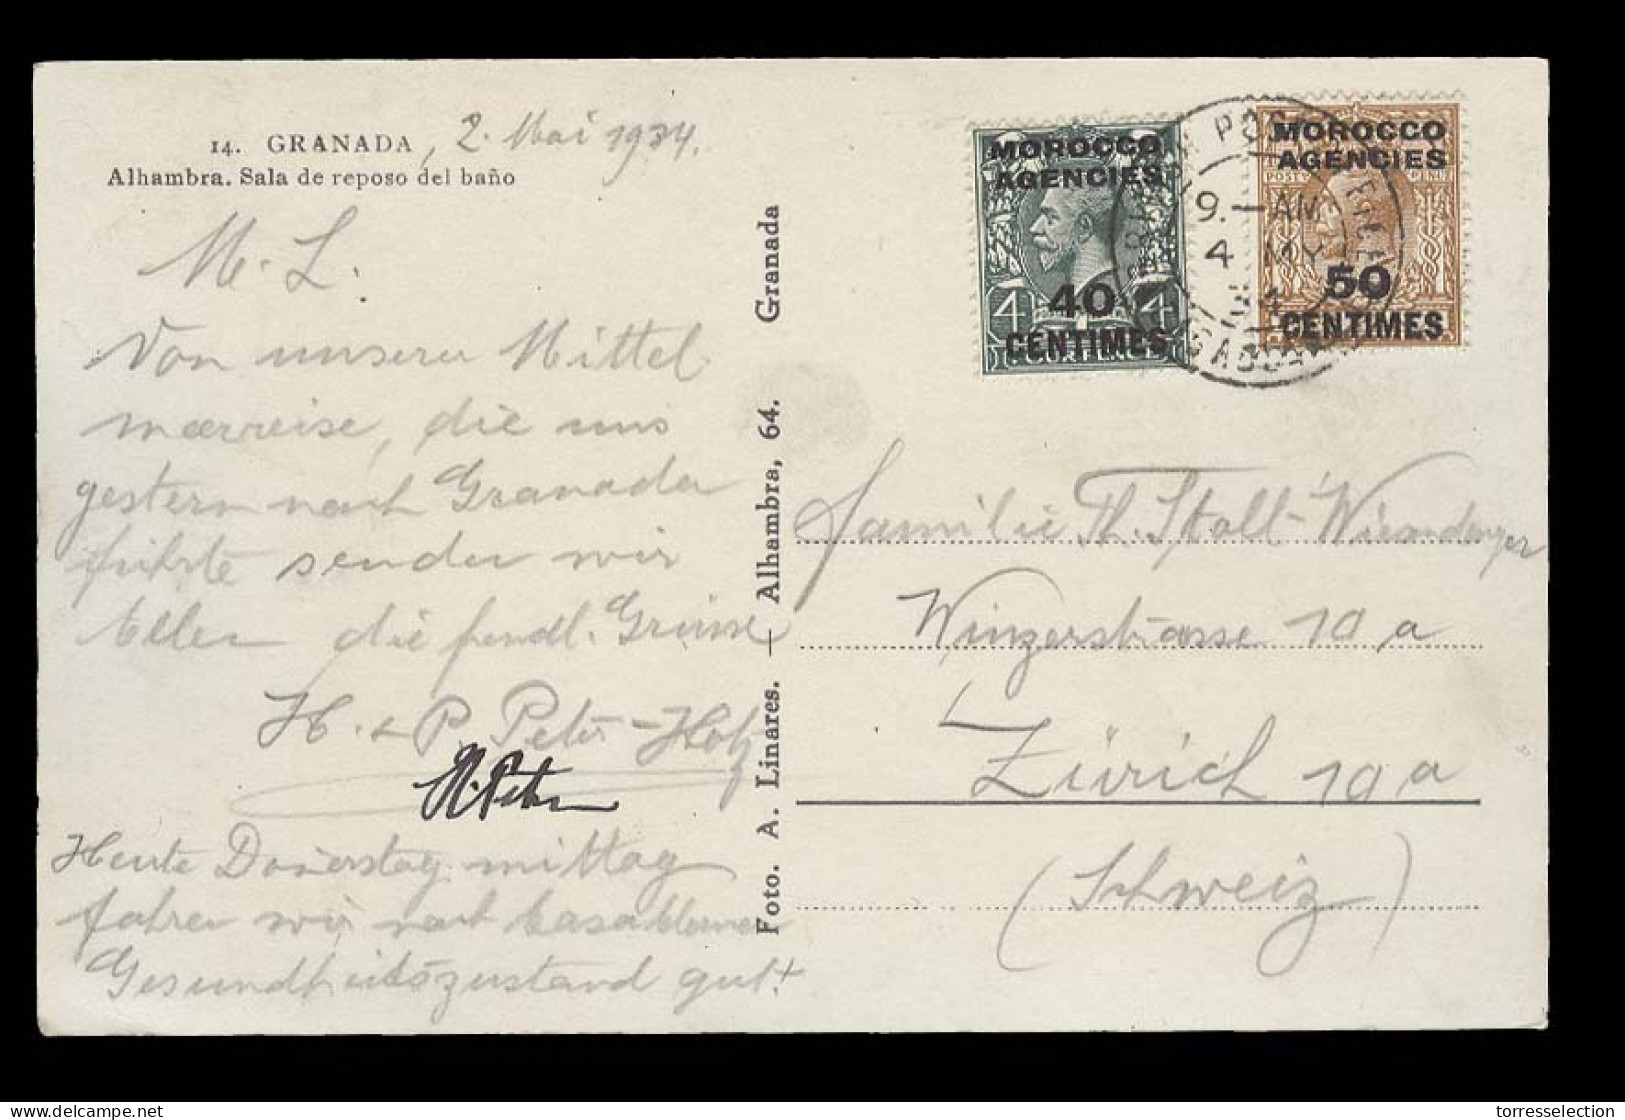 14. GRANADA, 2. Mai 1934.
Alhambra. Sala de reposo del baño
M. L.
Von unserer Mittel
meerreise, die uns
gestern nach Granada
führte senden wir
Allen die freundl. Grüsse
H. & P. Peter-Hotz
H. Peter
Heute Donnerstag mittag
fahren wir nach Casablanca
Gesundheitszustand gut!
Foto. A. Linares. — Alhambra, 64. Granada
MOROCCO
AGENCIES
4 40 4
CENTIMES
MOROCCO
AGENCIES
50
CENTIMES
9.—AM
4 MY
34
Familie Th. Stoll-
Winzerstrasse 19 a
Zürich 10 a
(Schweiz)
torresselection